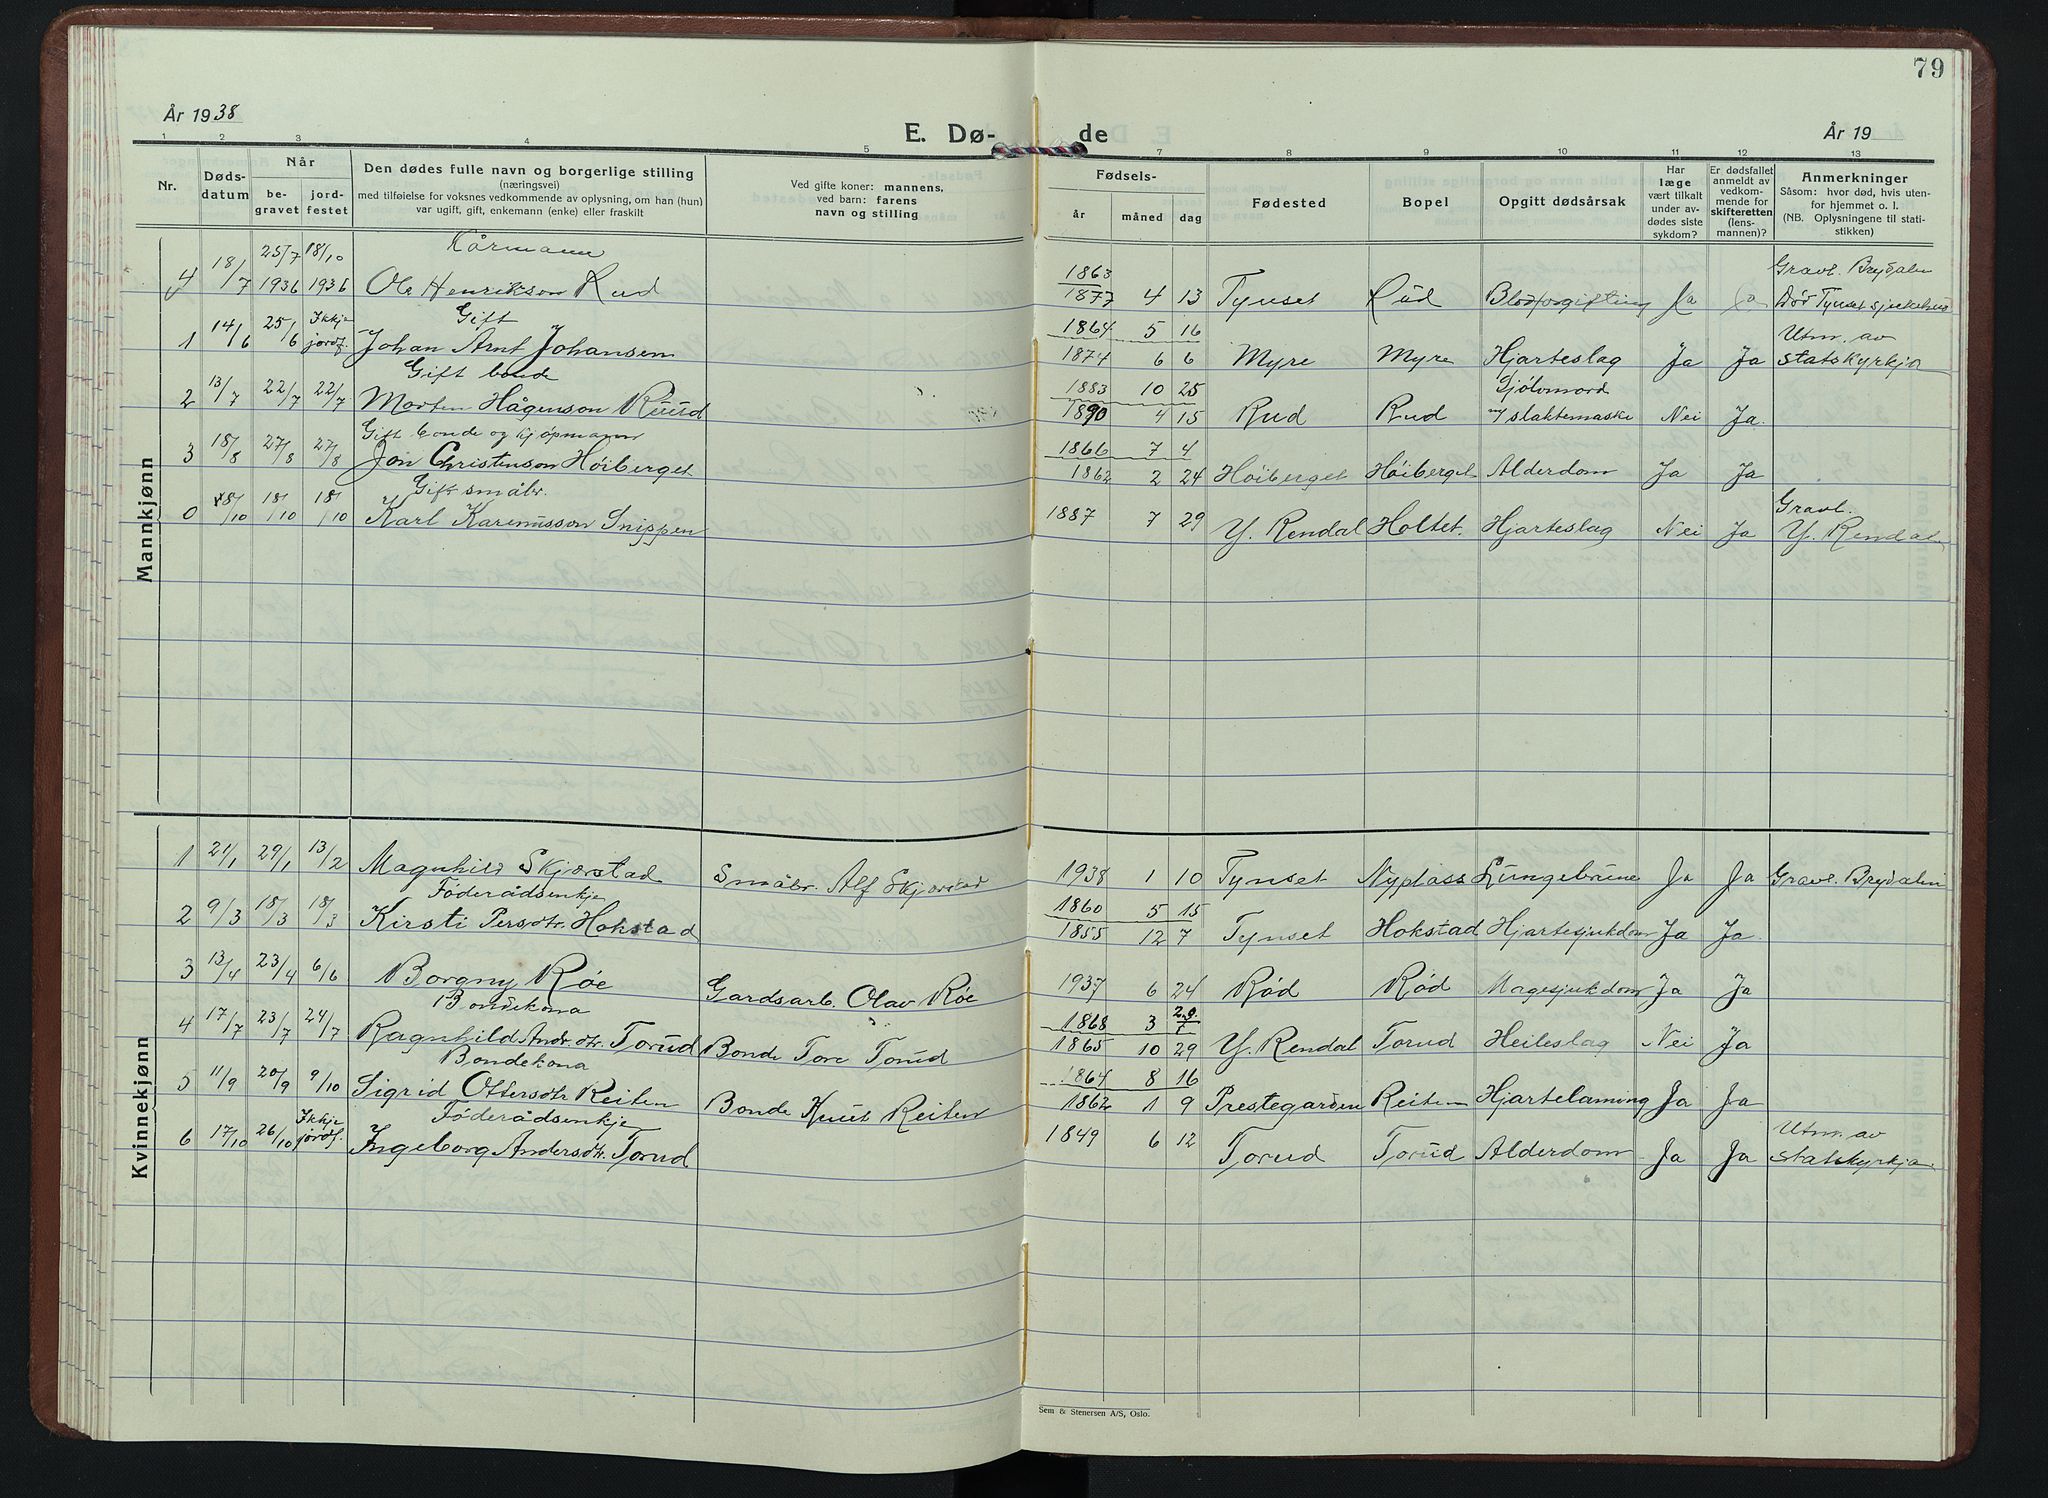 79
År 1938
E. Dø-
de
År 19
1 2 3 4 5 7 8 9 10 11 12 13
Nr.
Døds-
datum
Når
be-
gravet
jord-
festet
Den dødes fulle navn og borgerlige stilling
(næringsvei)
med tilføielse for voksnes vedkommende av oplysning, om han (hun)
var ugift, gift, enkemann (enke) eller fraskilt
Ved gifte koner: mannens,
ved barn: farens
navn og stilling
Fødsels-
år måned dag
Fødested
Bopel
Opgitt dødsårsak
Har
læge
vært tilkalt
under av-
dødes siste
sykdom?
Er dødsfallet
anmeldt av
vedkom-
mende for
skifteretten
(lens-
mannen)?
Anmerkninger
Såsom: hvor død, hvis uten-
for hjemmet o. l.
(NB. Oplysningene til stati-
stikken)
Mannkjønn
25/7 18/10 Kårmann
4 18/7 1936 1936 Ole Henrikson Rud 1863 1877 4 13 Tynset Rud Blodforgifting Ja Gravl. Brydalen
Død Tynset sjukehus
Gift
1 14/6 25/6 Ikkje jordf. Johan Arnt Johansen 1864 5 16 1874 6 6 Myre Myre Hjarteslag Ja Ja Utm. av
statskyrkja
Gift bonde
2 13/7 22/7 22/7 Morten Hågenson Ruud 1883 10 25 1890 4 15 Rud Rud Sjølvmord
m/slaktemaske Nei Ja.
Gift bonde og kjøpmann
3 18/8 27/8 27/8 Jon Christenson Høiberget 1866 7 4 1862 2 24 Høiberget Høiberget Alderdom Ja Ja
Gift småbr.
0 8/10 18/10 18/10 Karl Karenusson Snippen 1887 7 29 Y. Rendal Holtet. Hjarteslag Nei Ja Gravl.
Y. Rendal
Kvinnekjønn
1 21/1 29/1 13/2 Magnhild Skjærstad Småbr. Alf Skjærstad 1938 1 10 Tynset Nyplass Lungebrune Ja Ja Gravl. Brydalen
Føderådsenkje
2 9/3 18/3 18/3 Kirsti Persdtr. Hokstad 1860 5 15 1855 12 7 Tynset Hokstad Hjartesjukdom Ja Ja.
3 13/4 23/4 6/6 Borgny Røe Gardsarb. Olav Røe 1937 6 24 Rød Rød Magesjukdom Ja Ja
Bondekona
4 17/7 23/7 24/7 Ragnhild Andr.dtr. Torud Bonde Tore Torud 1868 3 1865 10 29 Y. Rendal Torud Heileslag Nei Ja
Bondekona
5 11/9 20/9 9/10 Sigrid Ottersdtr Reiten Bonde Knut Reiten 1864 8 16 1862 1 9 Prestegarden Reiten Hjartelaming Ja Ja
Føderådsenkje
6 17/10 26/10 Ikkje jordf. Ingeborg Andersdtr. Torud 1849 6 12 Torud Torud Alderdom Ja Ja Utm. av
statskyrkja
Sem & Stenersen A/S, Oslo.